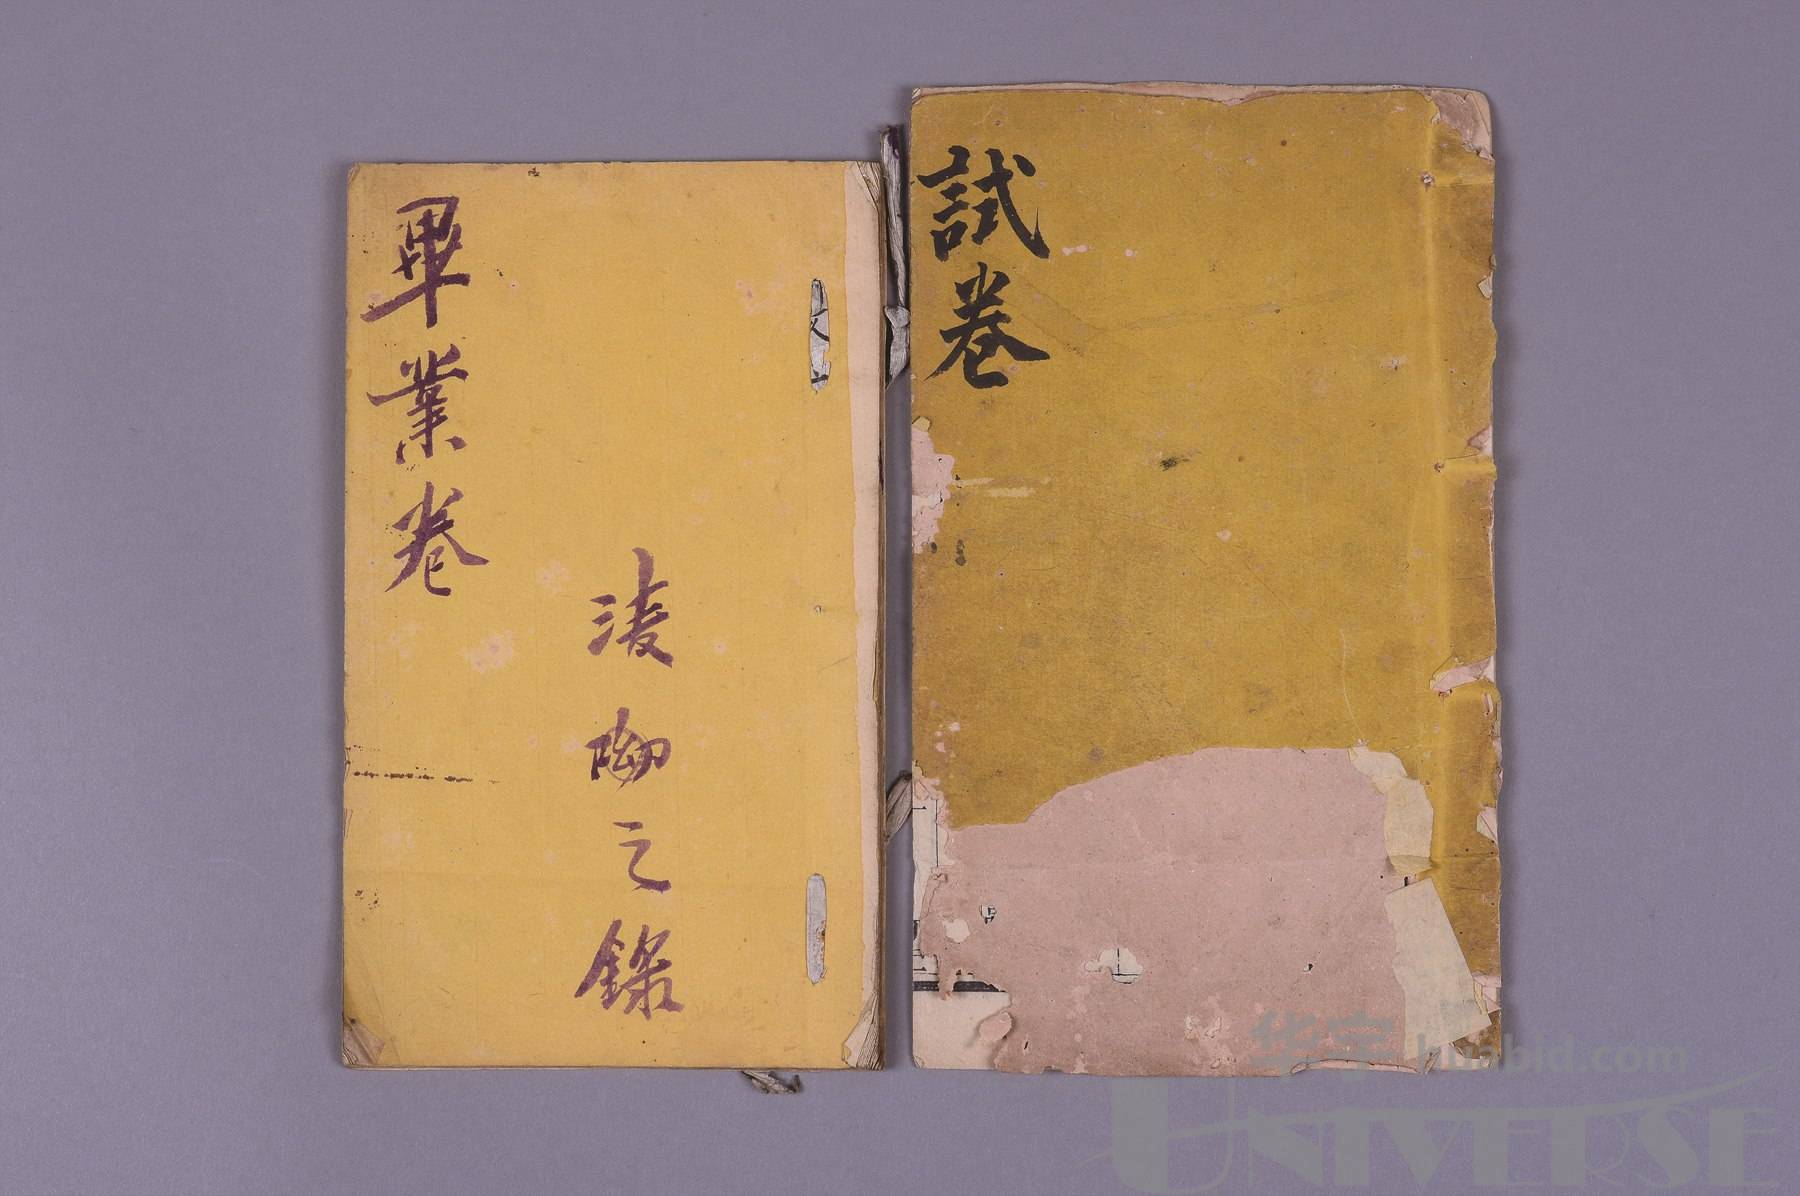 畢業卷
淩
之錄
試卷
华宇 huabid.com
UNIVERSE